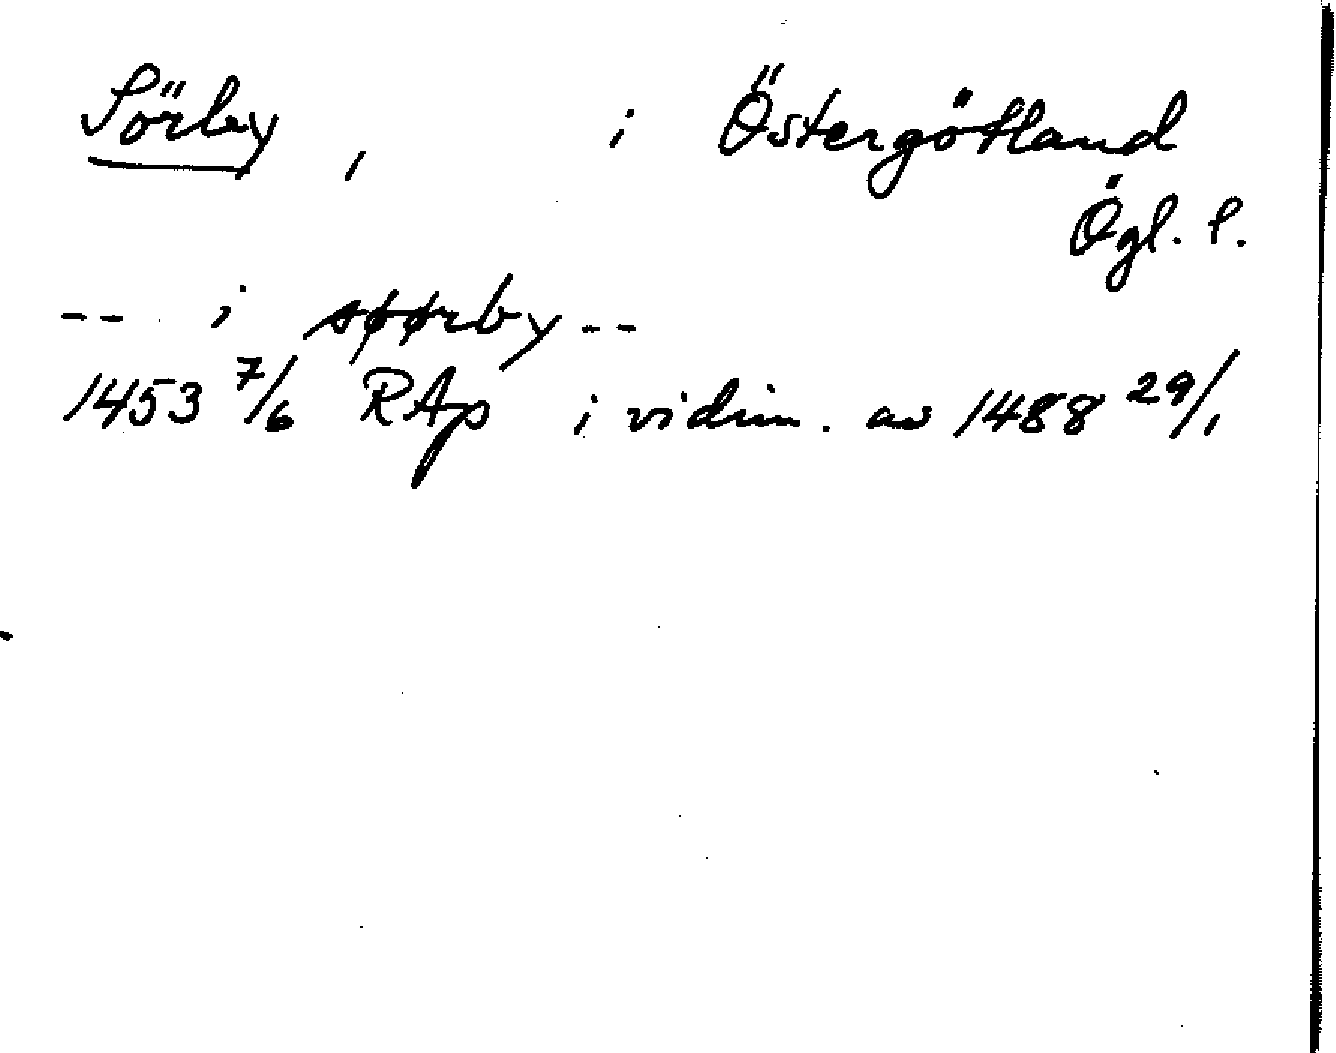 Sörby, i Östergötland
Ögl. l.
-- i søørby --
1453 7/6 RAp i vidim. av 1488 29/1